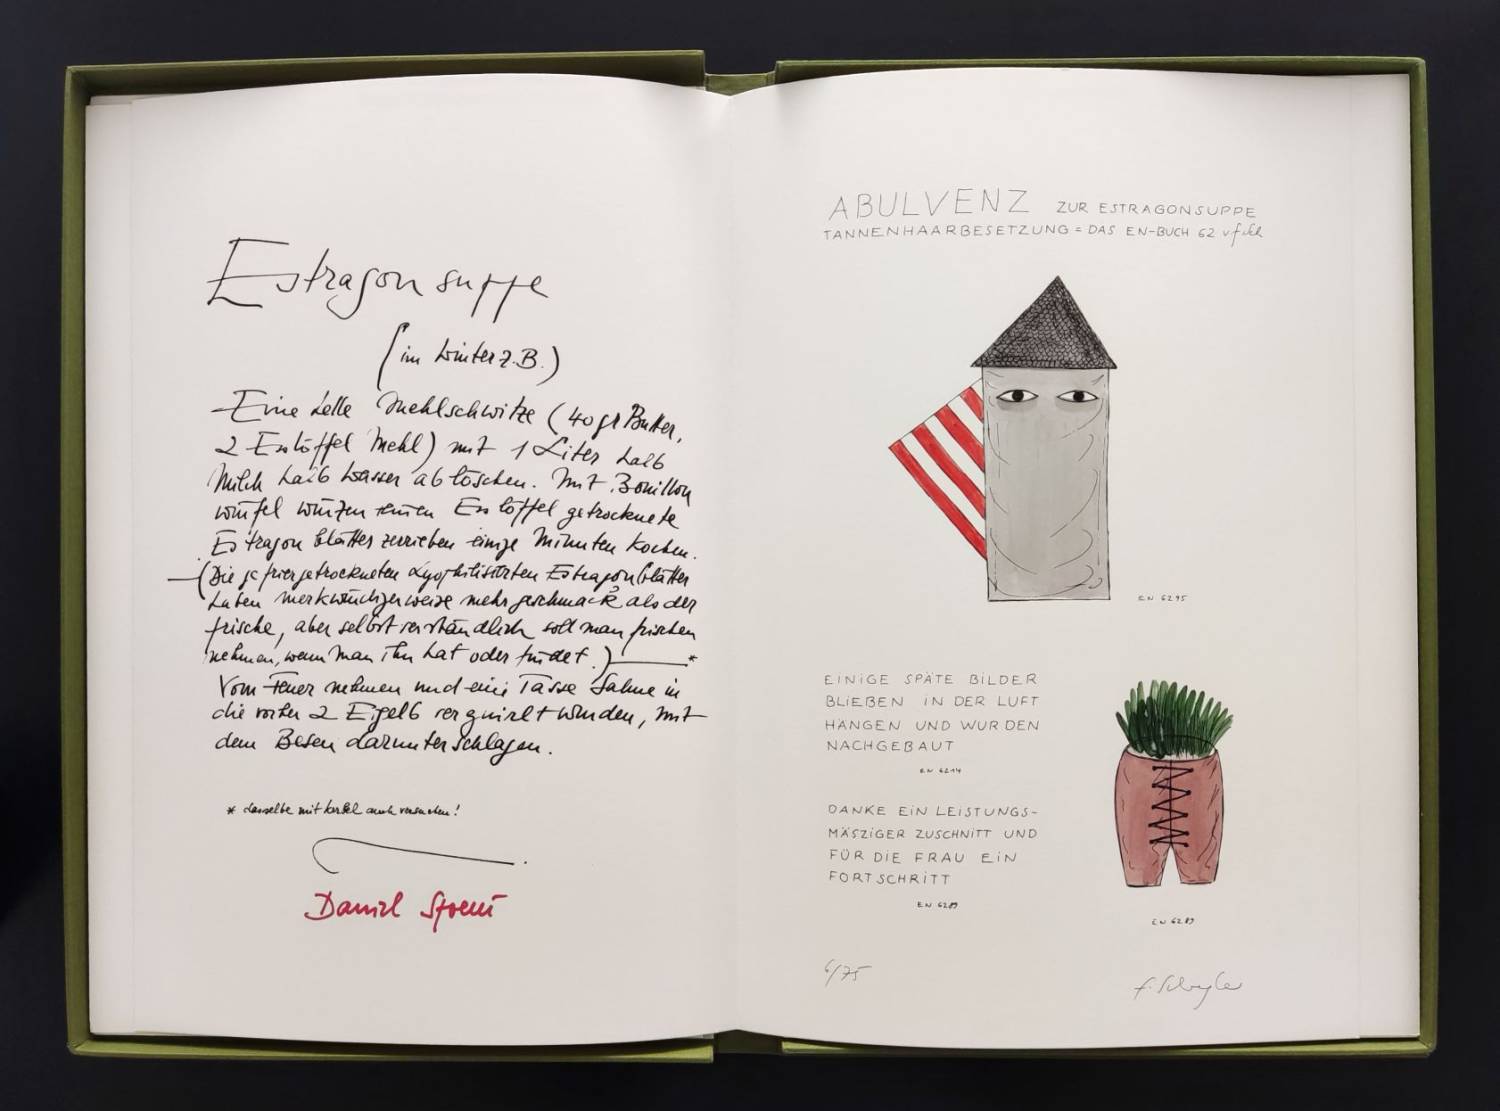 Estragonsuppe
(im Winter z.B.)
Eine helle Mehlschwitze (40 gr Butter,
2 Esslöffel Mehl) mit 1 Liter halb
Milch halb Wasser ablöschen. Mit Bouillon
würfel würzen einen Esslöffel getrocknete
Estragonblätter zerrieben einige Minuten kochen.
(Die gefriergetrockneten Lyophilisierten Estragonblätter
haben merkwürdigerweise mehr geschmack als der
frische, aber selbstverständlich soll man frischen
nehmen, wenn man ihn hat oder findet.) *
Vom Feuer nehmen und eine Tasse Sahne in
die vorher 2 Eigelb verquirlt wurden, mit
dem Besen darunter schlagen.
* dasselbe mit Kerbel auch versuchen!
Daniel Spoerri
ABULVENZ ZUR ESTRAGONSUPPE
TANNENHAARBESETZUNG = DAS EN-BUCH 62 v f Sch
EN 6295
EINIGE SPÄTE BILDER
BLIEBEN IN DER LUFT
HANGEN UND WURDEN
NACHGEBAUT
EN 6214
DANKE EIN LEISTUNGS-
MÄSZIGER ZUSCHNITT UND
FÜR DIE FRAU EIN
FORTSCHRITT
EN 6289
EN 6289
6/75